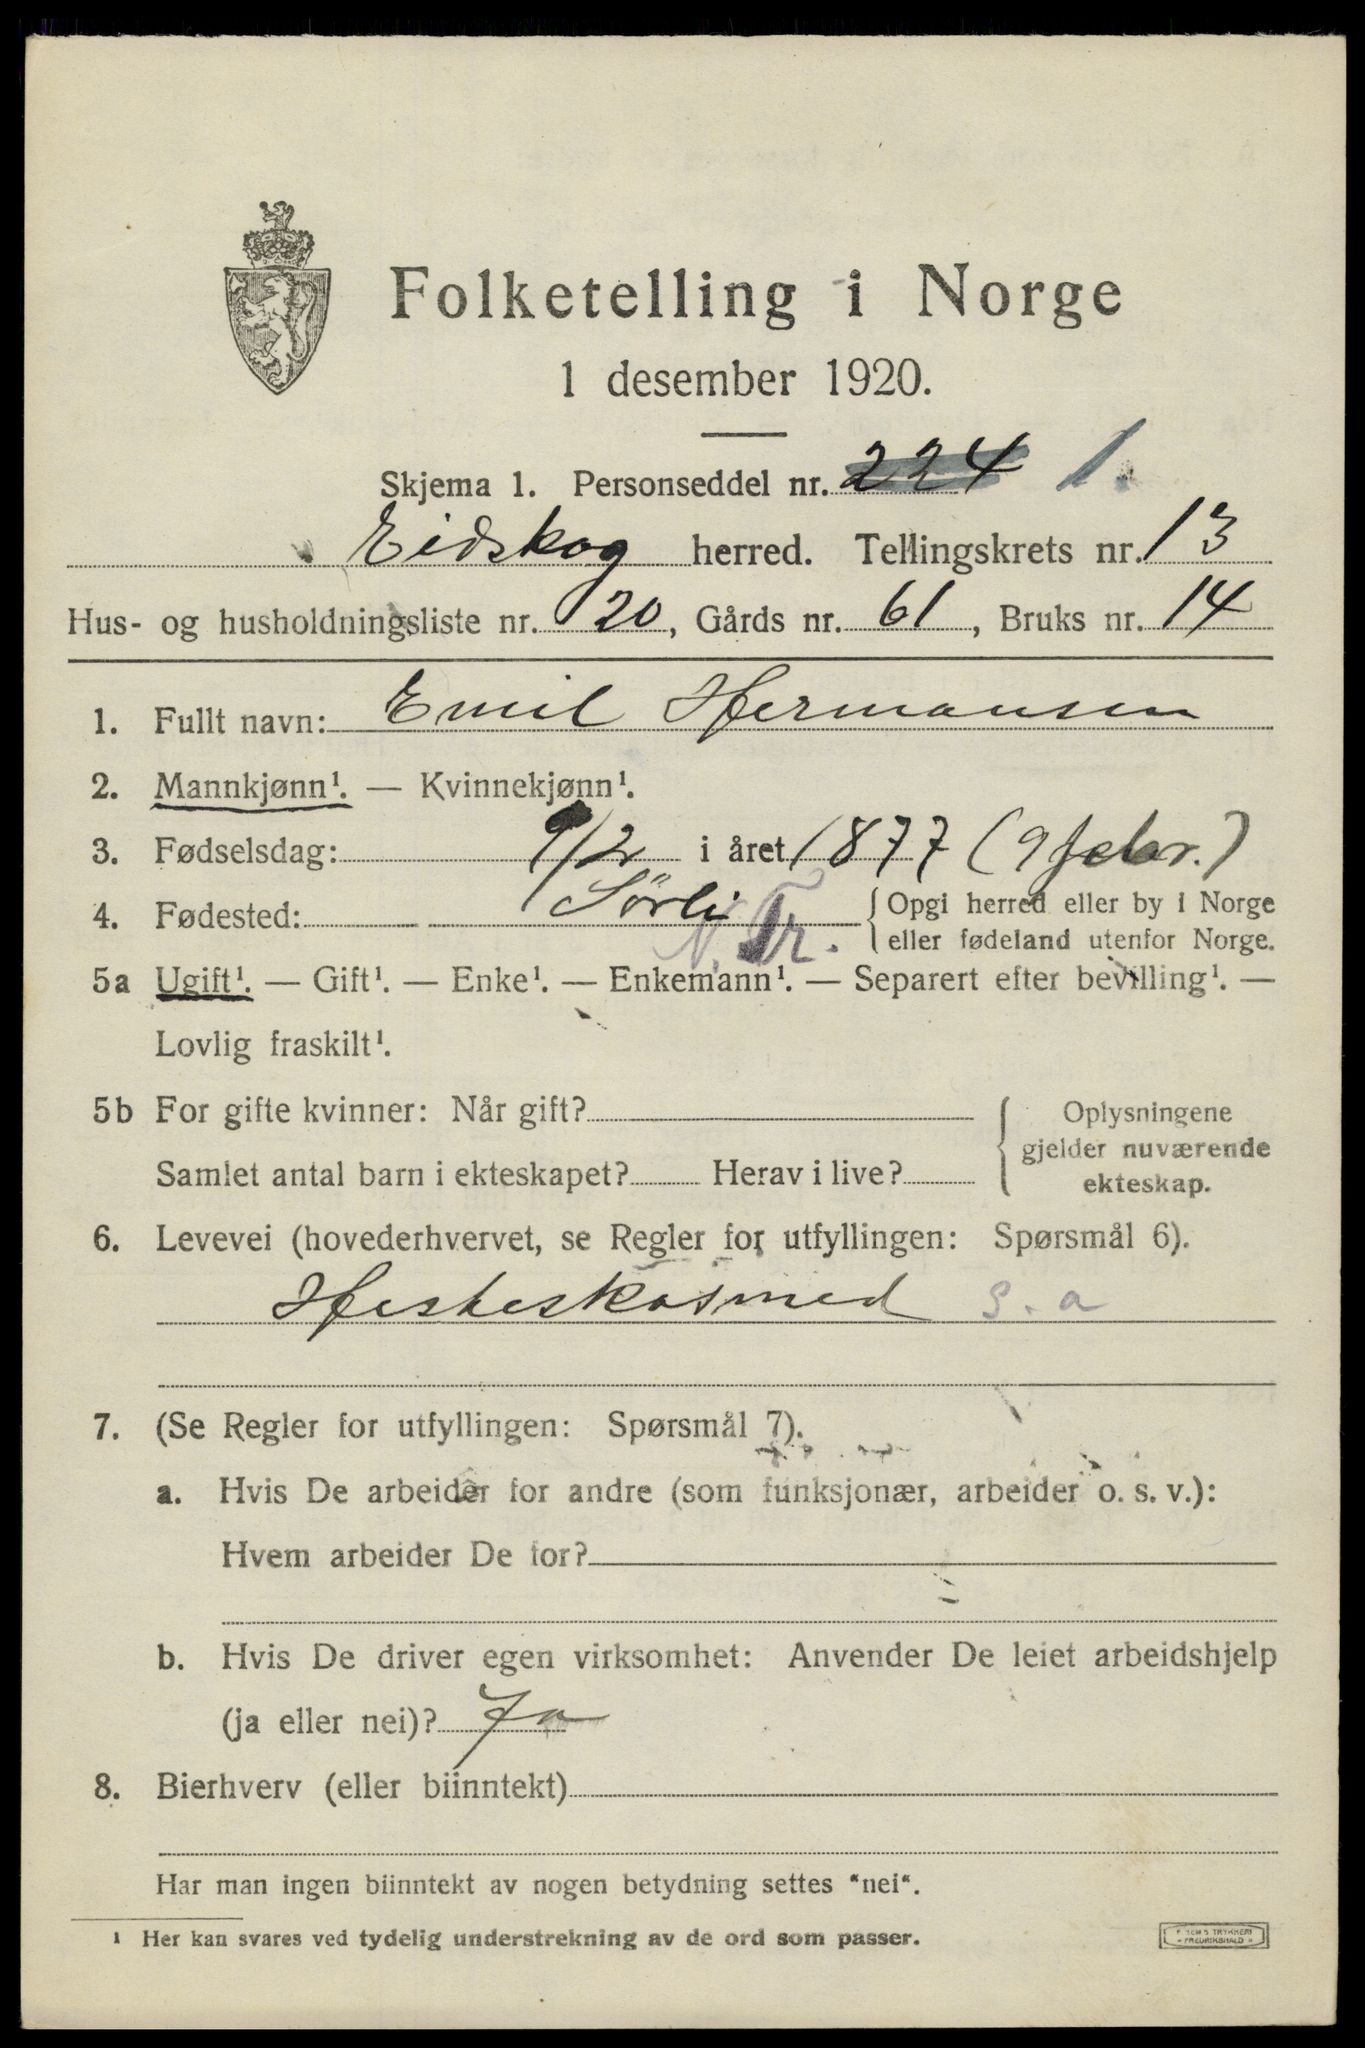 Folketelling i Norge
1 desember 1920.
Skjema 1. Personseddel nr. 224 1.
Eidskog herred. Tellingskrets nr. 13
Hus- og husholdningsliste nr. 20, Gårds nr. 61, Bruks nr. 14
1. Fullt navn: Emil Hermansen
2. Mannkjønn¹. — Kvinnekjønn¹.
3. Fødselsdag: 9/2 i året 1877 (9 febr.)
4. Fødested: Sörli N. Tr. { Opgi herred eller by i Norge
eller fødeland utenfor Norge.
5a Ugift¹. — Gift¹. — Enke¹. — Enkemann¹. — Separert efter bevilling¹. —
Lovlig fraskilt¹.
5b For gifte kvinner: Når gift?
Samlet antal barn i ekteskapet? Herav i live?
{ Oplysningene
gjelder nuværende
ekteskap.
6. Levevei (hovederhvervet, se Regler for utfyllingen: Spørsmål 6).
Hesteskosmed S. a
7. (Se Regler for utfyllingen: Spørsmål 7).
a. Hvis De arbeider for andre (som funksjonær, arbeider o. s. v.):
Hvem arbeider De for?
b. Hvis De driver egen virksomhet: Anvender De leiet arbeidshjelp
(ja eller nei)? Ja
8. Bierhverv (eller biinntekt)
Har man ingen biinntekt av nogen betydning settes "nei".
¹ Her kan svares ved tydelig understrekning av de ord som passer.
TRYKKERI
FREDRIKSHALD